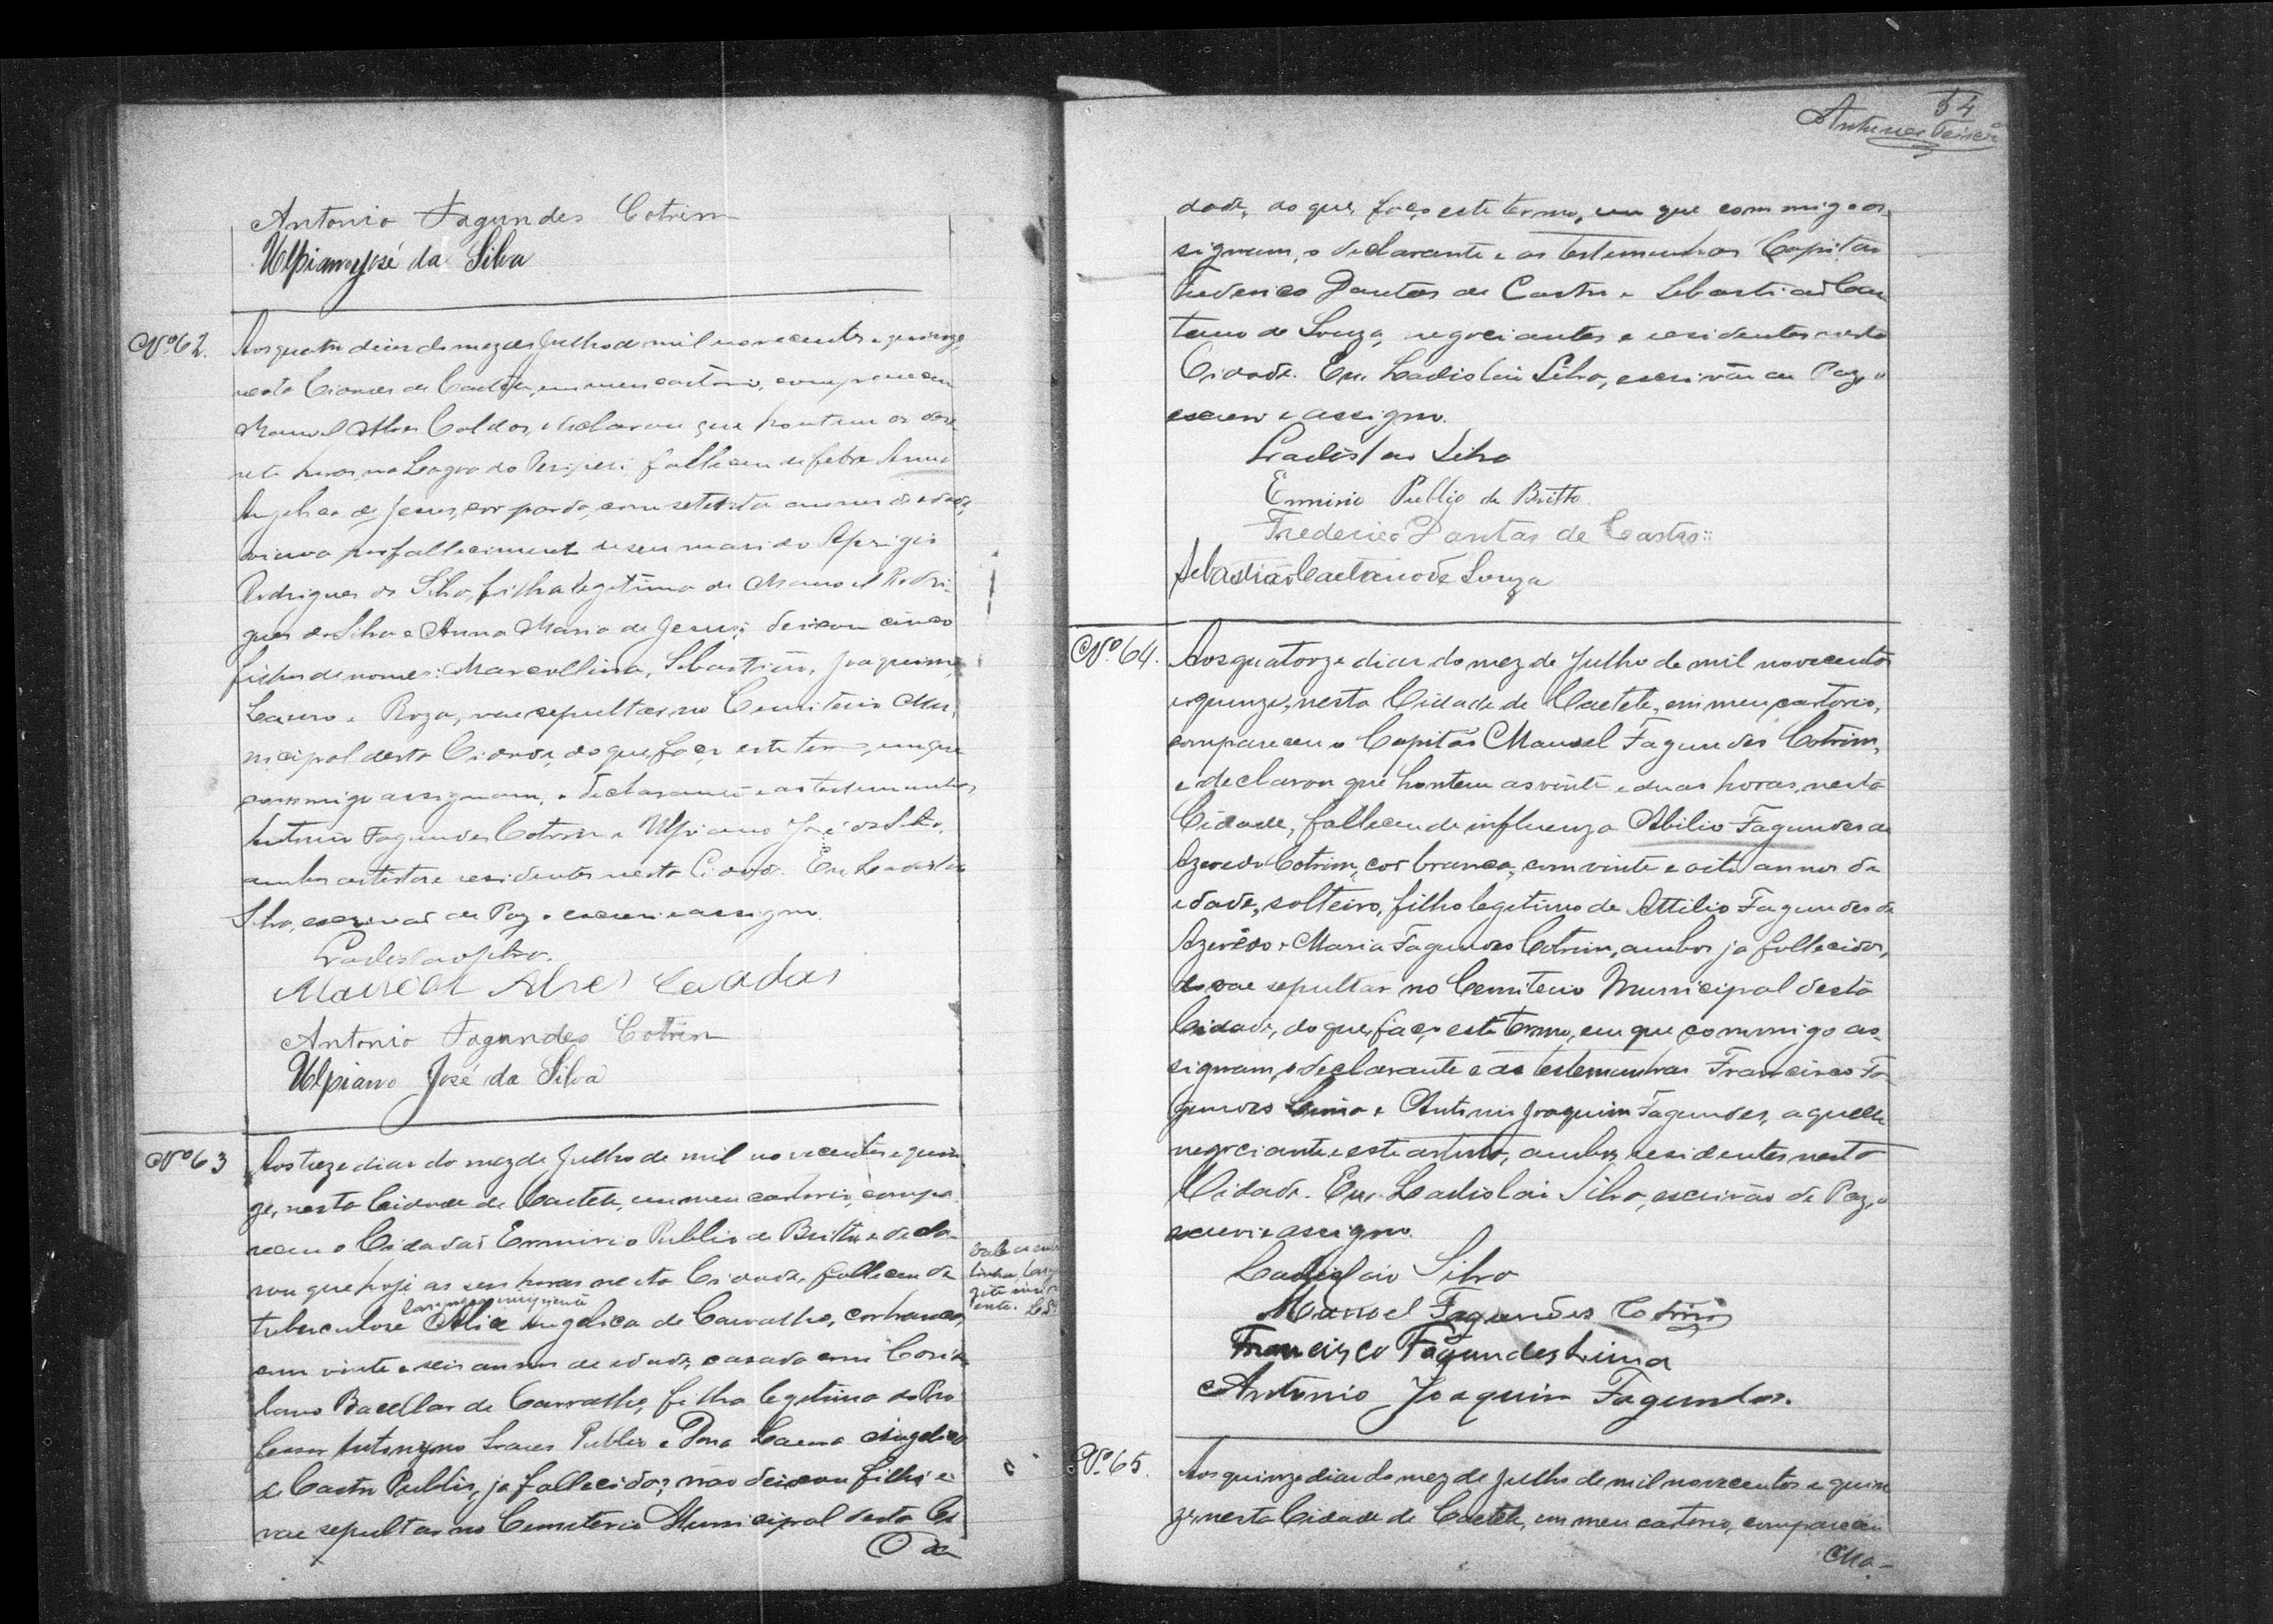 Antonio Fagundes Cotrim
Ulpiano José da Silva
Nº 62. Aos quatro dias do mez de Julho de mil novecentos e quinze,
nesta Cidade de Caeteté, em meu cartorio, compareceu
Manoel Alves Caldas, e declarou que hontem as deze-
sete horas, na Lagoa do Peripiri, falleceu de febre Anna
Angelica de Jesus, cor parda, com setenta annos de edade,
viuva por fallecimento de seu marido Aprigio
Rodrigues da Silva, filha legitima de Manoel Rodri-
gues da Silva e Anna Maria de Jesus; deixou cinco
filhos de nomes: Marcellina, Sebastião, Joaquim,
Lauro e Roza, vae sepultar no Cemiterio Mu-
nicipal desta Cidade, do que, faço este termo, em que
commigo assignam, o declarante e as testemunhas,
Antonio Fagundes Cotrim e Ulpiano José da Silva,
ambos artistas e residentes nesta Cidade. Eu Ladislau
Silva, escrivão de Paz o escrevi e assigno.
Ladislao Silva.
Manoel Alves Caldas
Antonio Fagundes Cotrim
Ulpiano José da Silva
Nº 63 Aos treze dias do mez de Julho de mil novecentos e quin-
ze, nesta Cidade de Caeteté, em meu cartorio, compa-
receu o Cidadão Erminio Publio de Britto e decla-
rou que hoje as seis horas nesta Cidade, falleceu de
tuberculose Alice Angelica de Carvalho, cor branca,
com vinte e seis annos de edade, casada com Corio-
lano Bacellar de Carvalho, filha legitima do Pro-
fessor Antonyno Soares Publio e Dona Laura Angelica
de Castro Publio, ja fallecidos; não deixou filhos e
vae sepultar no Cemeterio Municipal desta Ci-
da
54
Antunes Teixeira
dade, do que, faço este termo, em que commigo as-
signam, o declarante e as testemunhas Capitão
Frederico Dantas de Castro e Sebastião Cae-
tano de Souza, negociantes e residentes nesta
Cidade. Eu Ladislau Silva, escrivão de Paz, o
escrevi e assigno.
Ladislao Silva
Erminio Publio de Britto.
Frederico Dantas de Castro
Sebastião Caetano de Souza
Nº 64. Aos quatorze dias do mez de Julho de mil novecentos
e quinze, nesta Cidade de Caeteté, em meu cartorio,
compareceu o Capitão Manoel Fagundes Cotrim,
e declarou que hontem as vinte e duas horas, nesta
Cidade, falleceu de influenza Abilio Fagundes de
Azevedo Cotrim, cor branca, com vinte e oito annos de
edade, solteiro, filho legitimo de Attilio Fagundes de
Azevêdo e Maria Fagundes Cotrim, ambos ja fallecidos,
vae sepultar no Cemiterio Municipal desta
Cidade, do que, faço este termo, em que commigo as-
signam, o declarante e as testemunhas Francisco Fa-
gundes Lima e Antonio Joaquim Fagundes, aquelle
negociante e este artista, ambos residentes nesta
Cidade. Eu Ladislau Silva, escrivão de Paz, o
escrevi e assigno.
Ladislao Silva
Manoel Fagundes Cotrim
Francisco Fagundes Lima
Antonio Joaquim Fagundes.
Nº 65. Aos quinze dias do mez de Julho de mil novecentos e quin-
ze, nesta Cidade de Caeteté, em meu cartorio, compareceu
Ma-